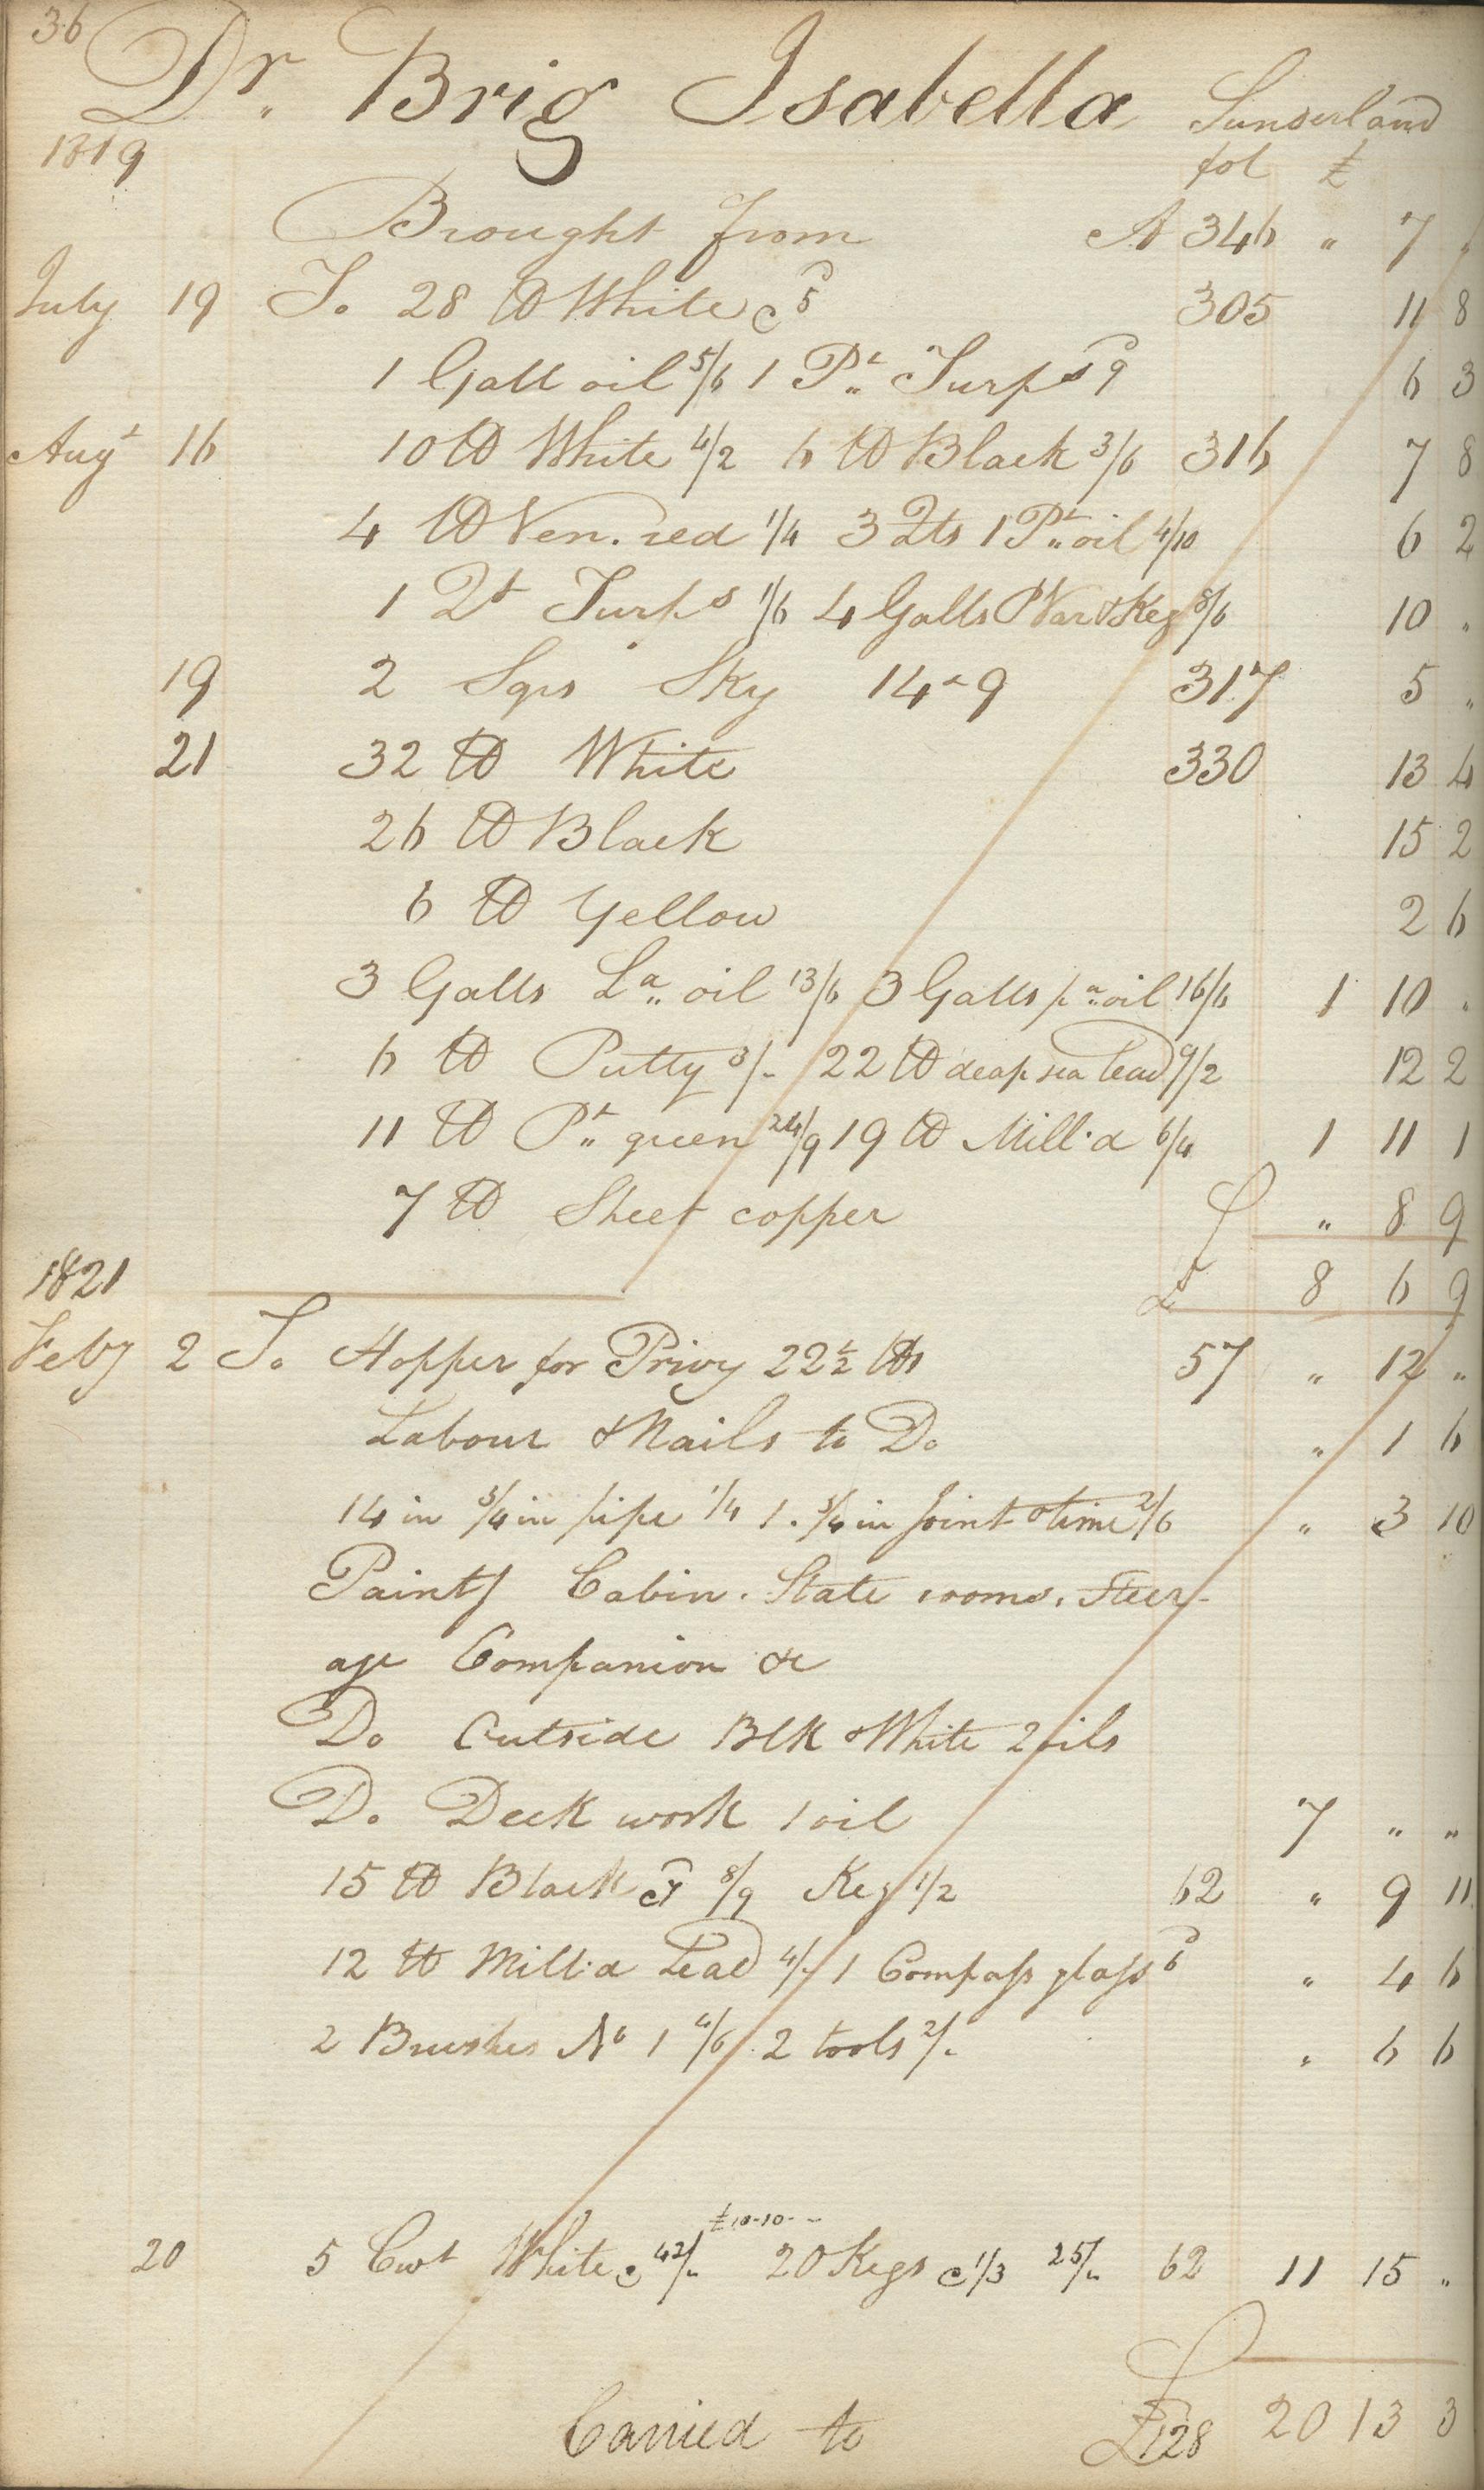 36
Dr. Brig Isabella Sunderland
1819 fol £
Brought from A 346 " 7 "
July 19 To 28 lb White @ 5d 305 11 8
1 Gall oil 5/6 1 Pt Turps 9d 6 3
Augt 16 10 lb White 4/2 6 lb Black 3/6 316 7 8
4 lb Ven. red 1/4 3 Qts 1 Pt oil 4/10 6 2
1 Qt Turps 1/6 4 Galls Var & Keg 8/6 10 "
19 2 Sqrs Sky 14 x 9 317 5 "
21 32 lb White 330 13 4
26 lb Black 15 2
6 lb Yellow 2 6
3 Galls La oil 13/6 3 Galls pa oil 16/6 1 10 "
6 lb Putty 3/- 22 lb deap sea lead 9/2 12 2
11 lb Pt green 24/9 19 lb Mill'd 6/4 1 11 1
7 lb Sheet copper " 8 9
£ 8 6 9
1821
Feby 2 To Hopper for Privy 22½ lbs 57 " 12 "
Labour & Nails to Do " 1 6
14 in 3/4 in pipe 1/4 1. 3/4 in Joint & time 2/6 " 3 10
Paintg Cabin. State rooms. Steer-
age Companion &c
Do Outside Blk & White 2 oils
Do Deck work 1 oil 7 " "
15 lb Black @ 7 8/9 Keg 1/2 62 " 9 11
12 lb Mill'd Lead 4/- 1 Compass glass 6d " 4 6
2 Brushes No 1 4/6 2 tools 2/- " 6 6
£10-10--
20 5 Cwt White @ 42/- 20 Kegs @ 1/3 25/- 62 11 15 "
Carried to £128 20 13 3